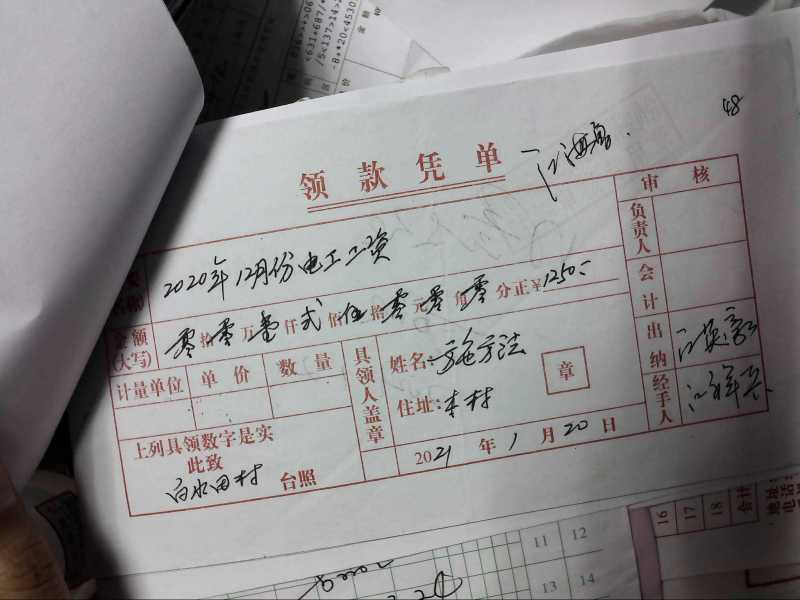 48
领款凭单
审核
2020年12月份电工工资
负责人
金额(大写)
零拾零万壹仟弍佰伍拾零元零角零分正¥1250.-
会计
计量单位 单价 数量
具领人盖章
姓名:施方法
章
住址:本村
出纳
经手人
上列具领数字是实
此致
白水田村 台照
2021年1月20日
11 12
13 14
16
17
18
合计
地址:
电话: